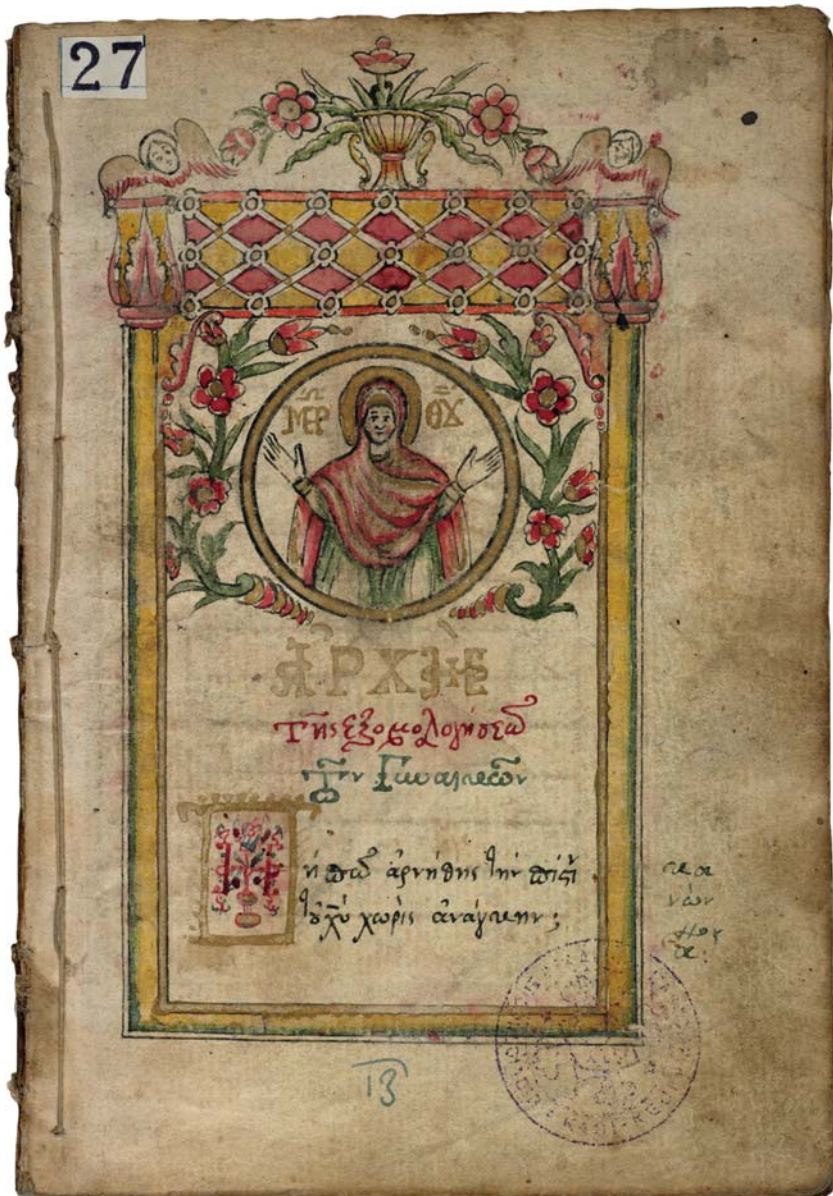 27
ΜΕΡ ΘΥ
ΑΡΧΗ
τῆς ἐξομολογήσεω
τῶν Γυναικῶν
Μήπως ἀρνήθης τὴν πίστι
τοῦ χυ χωρὶς ἀνάγκην;
κα
νὼν
13